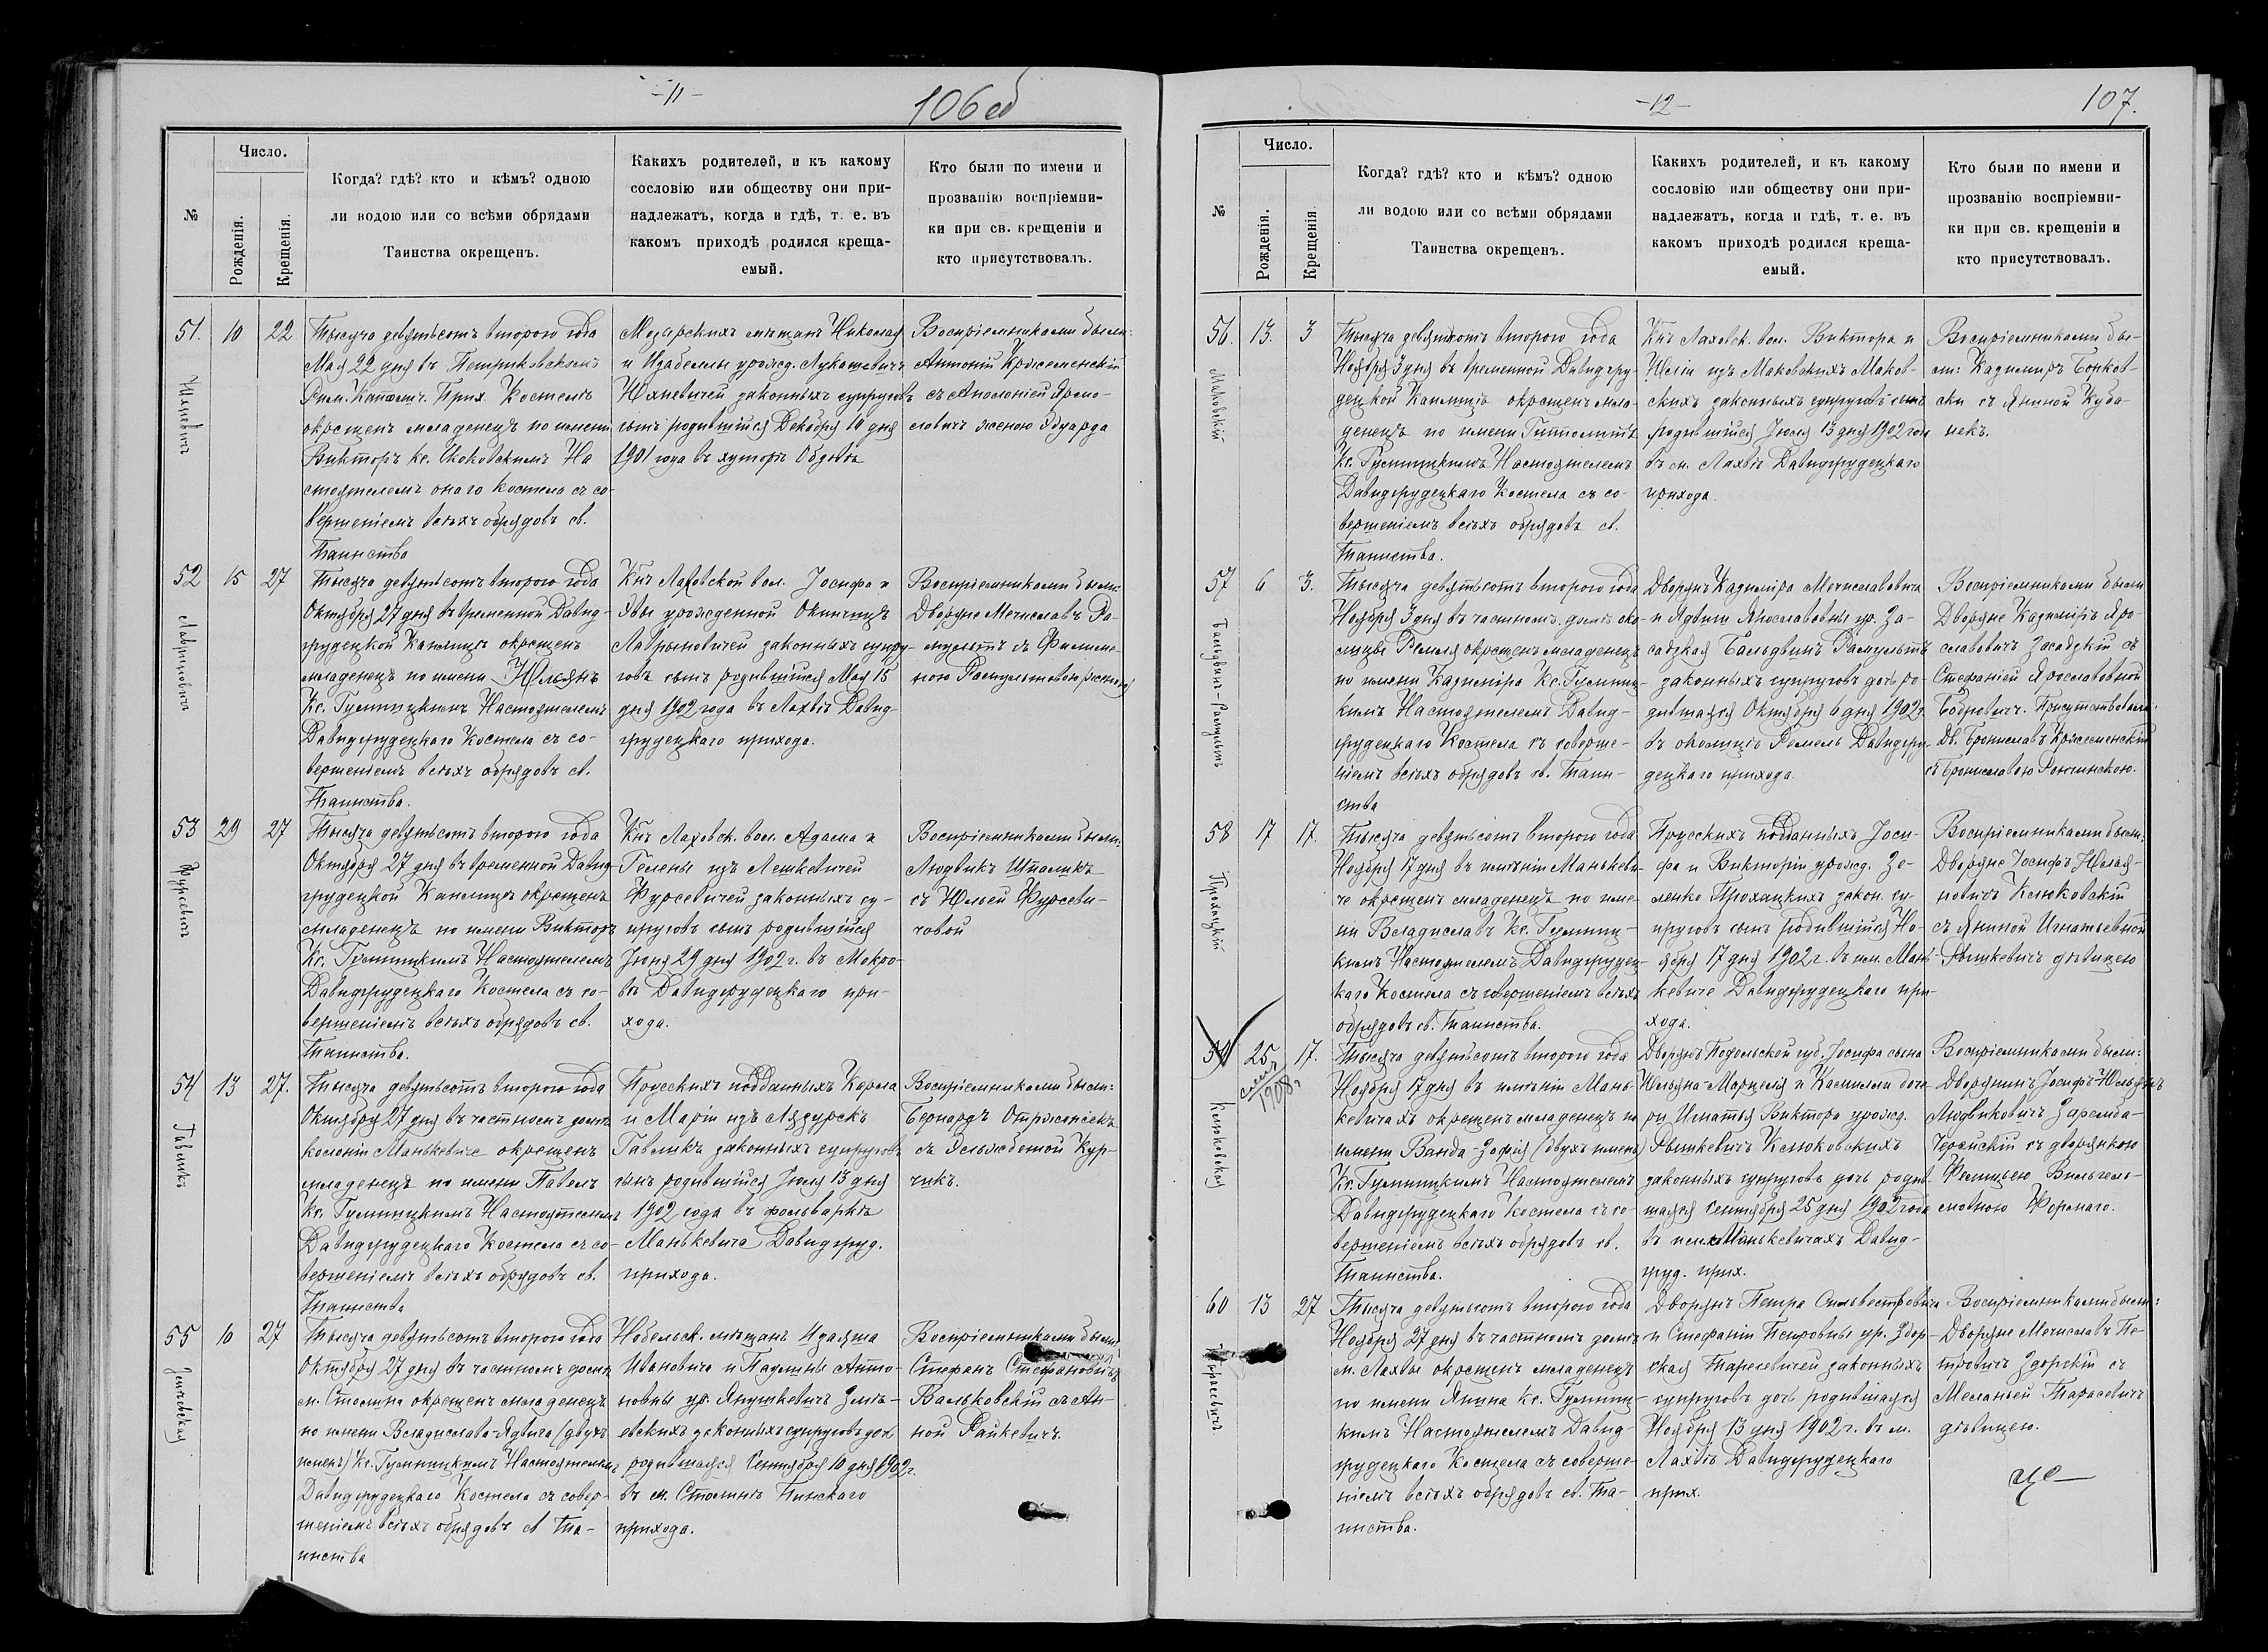 -11-
106 об
№
Число.
Рожденія.
Крещенія.
Когда? гдѣ? кто и кѣмъ? одною
ли водою или со всѣми обрядами
Таинства окрещенъ.
Какихъ родителей, и къ какому
сословію или обществу они при-
надлежатъ, когда и гдѣ, т. е. въ
какомъ приходѣ родился креща-
емый.
Кто были по имени и
прозванію воспріемни-
ки при св. крещеніи и
кто присутствовалъ.
51. 10 22
Тысяча девятьсотъ второго года
Мая 22 дня въ Петриковскомъ
Рим. Католич. Прих. Костелѣ
окрещенъ младенецъ по имени
Викторъ кс. На
стоятелемъ онаго Костела съ со-
вершеніемъ всѣхъ обрядовъ св.
Таинства
Мозырскихъ мѣщанъ Николая
и Изабеллы урожд. Лукашевичъ
законныхъ супруговъ
сынъ родившійся Декабря 10 дня
1901 года въ хуторѣ
Воспріемниками были:
Антоній Кржеменскій
съ Аполоніей Яроло-
вичъ женою Эдуарда
52 15 27
Лавриновичъ
Тысяча девятьсотъ второго года
Октября 27 дня въ временной Давид-
грудецкой Каплицѣ окрещенъ
младенецъ по имени Юльянъ
Кс. Гумницкимъ Настоятелемъ
Давидгрудецкаго Костела съ со-
вершеніемъ всѣхъ обрядовъ св.
Таинства.
Кнъ Лаховской вол. Іосифа и
Эвы урожденной Окинчицъ
Лавриновичей законныхъ супру-
говъ сынъ родившійся Мая 15
дня 1902 года въ Лахвѣ Давид-
грудецкаго прихода.
Воспріемниками были:
Дворяне Мечиславъ Ра-
мультъ съ Филоме-
ною Рамультовою
53 29 27
Фурсевичъ
Тысяча девятьсотъ второго года
Октября 27 дня въ временной Давид-
грудецкой Каплицѣ окрещенъ
младенецъ по имени Викторъ
Кс. Гумницкимъ Настоятелемъ
Давидгрудецкаго Костела съ со-
вершеніемъ всѣхъ обрядовъ св.
Таинства.
Кнъ Лаховск. вол. Адама и
Гелены изъ Лешкевичей
Фурсевичей законныхъ су-
пруговъ сынъ родившійся
Іюня 29 дня 1902 г. въ Мокро-
вѣ Давидгрудецкаго при-
хода.
Воспріемниками были:
Людвикъ Шпаликъ
съ Юльей Фурсеви-
човой
54 13 27.
Гавликъ
Тысяча девятьсотъ второго года
Октября 27 дня въ частномъ домѣ
колоніи Манькевиче окрещенъ
младенецъ по имени Павелъ
Кс. Гумницкимъ Настоятелемъ
Давидгрудецкаго Костела съ со-
вершеніемъ всѣхъ обрядовъ св.
Таинства
Прусскихъ подданныхъ Карла
и Маріи изъ Мазурекъ
Гавликъ законныхъ супруговъ
сынъ родившійся Іюля 13 дня
1902 года въ фольваркѣ
Манькевича Давидгруд.
прихода.
Воспріемниками были:
Бернардъ
съ Эльжбетой Кур-
чикъ.
55 10 27
Тысяча девятьсотъ второго года
Октября 27 дня въ частномъ домѣ
м. Столина окрещенъ младенецъ
по имени Владислава-Ядвига (двухъ
именъ) Кс. Гумницкимъ Настоятелемъ
Давидгрудецкаго Костела съ совер-
шеніемъ всѣхъ обрядовъ св Та-
инства
Нобельск. мѣщанъ
Ивановича и Паулины Анто-
новны ур. Янушкевичъ Зенѣ-
евскихъ законныхъ супруговъ дочь
родившаяся Сентября 10 дня 1902 г.
въ м. Столинѣ Пинскаго
прихода.
Воспріемниками были:
Стефанъ Стефановичъ
Вальковскій съ Ан-
ной Райкевичъ.
-12-
107.
№
Число.
Рожденія.
Крещенія.
Когда? гдѣ? кто и кѣмъ? одною
ли водою или со всѣми обрядами
Таинства окрещенъ.
Какихъ родителей, и къ какому
сословію или обществу они при-
надлежатъ, когда и гдѣ, т. е. въ
какомъ приходѣ родился креща-
емый.
Кто были по имени и
прозванію воспріемни-
ки при св. крещеніи и
кто присутствовалъ.
56. 13. 3
Маковскій
Тысяча девятьсотъ второго года
Ноября 3 дня въ временной Давидгру-
децкой Каплицѣ окрещенъ мла-
денецъ по имени Гипполитъ
Кс. Гумницкимъ Настоятелемъ
Давидгрудецкаго Костела съ со-
вершеніемъ всѣхъ обрядовъ св.
Таинства.
Кнъ Лаховск. вол. Виктора и
Юліи изъ Маковскихъ Маков-
скихъ законныхъ супруговъ сынъ
родившійся Іюля 13 дня 1902 года
въ м. Лахвѣ Давидгрудецкаго
прихода.
Воспріемниками бы-
ли: Казимиръ Борков-
ски съ Яниной Куба-
некъ.
57 6 3.
Бальдвинъ-Рамультъ
Тысяча девятьсотъ второго года
Ноября 3 дня въ частномъ домѣ око-
лицы Ремля окрещенъ младенецъ
по имени Казимира Кс. Гумниц-
кимъ Настоятелемъ Давид-
грудецкаго Костела съ соверше-
ніемъ всѣхъ обрядовъ св. Таин-
ства
Дворянъ Казимира Мечиславовича
и Ядвиги Ярославовны ур. За-
садзкая Бальдвинъ Рамультъ
законныхъ супруговъ дочь ро-
дившаяся Октября 6 дня 1902 г.
въ околицѣ Ремель Давидгру-
децкаго прихода.
Воспріемниками были
Дворяне Казимиръ Яро-
славовичъ Засадзкій съ
Стефаніей Ярославовной
Бобровичъ. Присутствовали:
Дв. Брониславъ Кржеменскій
съ Брониславою
58 17 17.
Прохацкій
Тысяча девятьсотъ второго года
Ноября 17 дня въ имѣніи Манькеви-
че окрещенъ младенецъ по име-
ни Владиславъ Кс. Гумниц-
кимъ Настоятелемъ Давидгрудец-
каго Костела съ совершеніемъ всѣхъ
обрядовъ св. Таинства.
Прусскихъ подданныхъ Іоси-
фа и Викторіи урожд. Зе-
ленко Прохацкихъ закон. су-
пруговъ сынъ родившійся Но-
ября 17 дня 1902 г. въ им. Мань-
кевиче Давидгрудецкаго при-
хода.
Воспріемниками были:
Дворяне Іосифъ Юлья-
новичъ Клюковскій
съ Яниной Игнатьевной
дѣвицею
59 25 17.
1908 г
Клюковская
Тысяча девятьсотъ второго года
Ноября 17 дня въ имѣніи Мань-
кевичахъ окрещенъ младенецъ по
имени Ванда-Зофія (двухъ именъ)
Кс. Гумницкимъ Настоятелемъ
Давидгрудецкаго Костела съ со-
вершеніемъ всѣхъ обрядовъ св.
Таинства.
Дворянъ Подольской губ. Іосифа сына
Юльяна-Марцелія и Камиллы доче-
ри Игнатья Виктора урожд.
Клюковскихъ
законныхъ супруговъ дочь родив-
шаяся Сентября 25 дня 1902 года
въ им. Манькевичахъ Давид-
груд. прих.
Воспріемниками были:
Дворянинъ Іосифъ Юльянъ
Людвиковичъ Заремба-
съ дворянкою
Фелицьею Вильгель-
мовною
60 13 27
Тарасевичъ
Тысяча девятьсотъ второго года
Ноября 27 дня въ частномъ домѣ
м. Лахвы окрещенъ младенецъ
по имени Янина кс. Гумниц-
кимъ Настоятелемъ Давид-
грудецкаго Костела съ соверше-
ніемъ всѣхъ обрядовъ св. Та-
инства.
Дворянъ Петра Сильвестровича
и Стефаніи Петровны ур. Здор-
ская Тарасевичей законныхъ
супруговъ дочь родившаяся
Ноября 13 дня 1902 г. въ м.
Лахвѣ Давидгрудецкаго
прих.
Воспріемниками были:
Дворяне Мечиславъ Пе-
тровичъ Здорскій съ
Меланьей Тарасевичъ
дѣвицею.